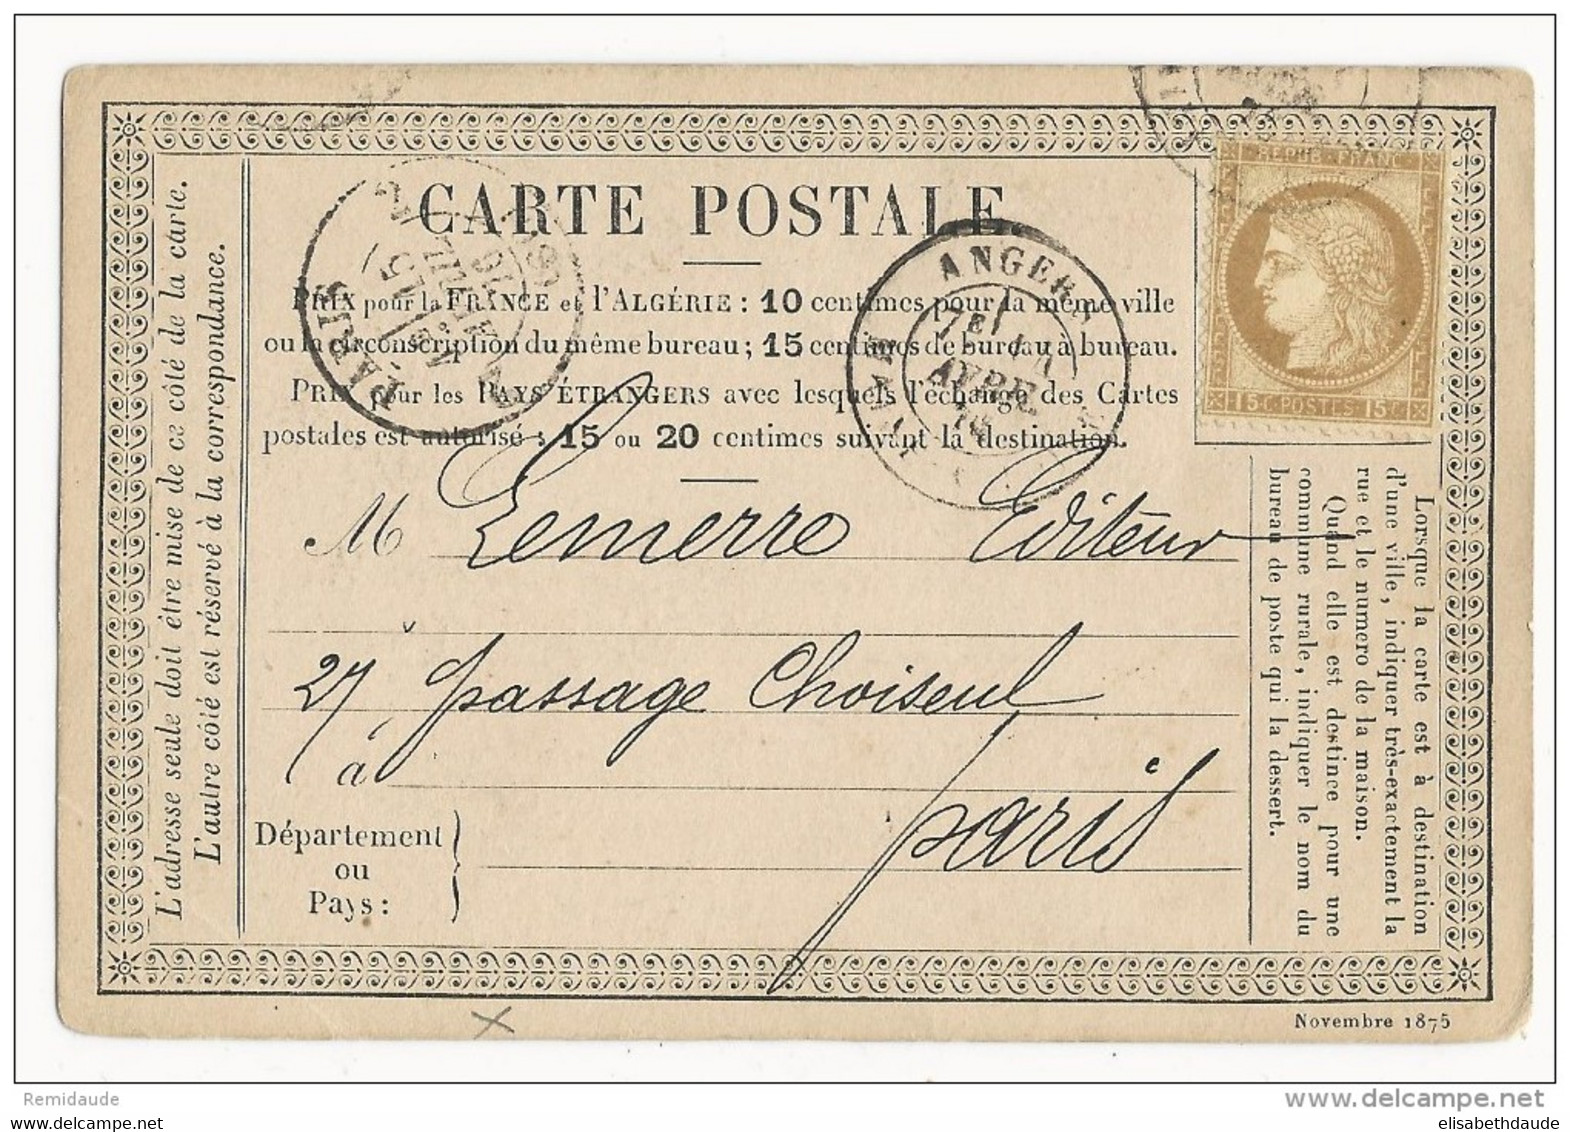 CARTE POSTALE
PRIX pour la FRANCE et l'ALGÉRIE : 10 centimes pour la même ville
ou la circonscription du même bureau ; 15 centimes de bureau à bureau.
PRIX pour les PAYS ÉTRANGERS avec lesquels l'échange des Cartes
postales est autorisé : 15 ou 20 centimes suivant la destination.
M Lemerre Editeur
27 passage Choiseul
à Paris
Département
ou
Pays :
L'adresse seule doit être mise de ce côté de la carte.
L'autre côté est réservé à la correspondance.
Lorsque la carte est à destination
d'une ville, indiquer très-exactement la
rue et le numero de la maison.
Quand elle est destinee pour une
commune rurale, indiquer le nom du
bureau de poste qui la dessert.
REPUB FRANC
15 C POSTES 15 C
ANGERS
AVRIL
PARIS
Novembre 1875
Remidaude
www.delcampe.net
www.delcampe.net
elisabethdaude